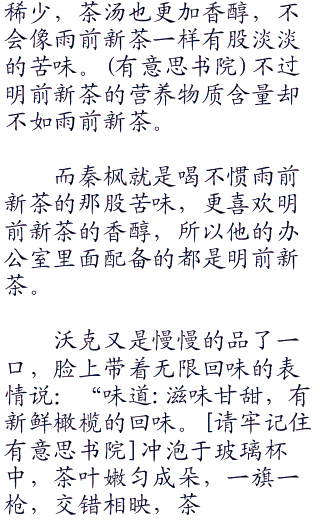 稀少，茶汤也更加香醇，不
会像雨前新茶一样有股淡淡
的苦味。(有意思书院)不过
明前新茶的营养物质含量却
不如雨前新茶。
而秦枫就是喝不惯雨前
新茶的那股苦味，更喜欢明
前新茶的香醇，所以他的办
公室里面配备的都是明前新
茶。
沃克又是慢慢的品了一
口，脸上带着无限回味的表
情说：“味道:滋味甘甜，有
新鲜橄榄的回味。[请牢记住
有意思书院]冲泡于玻璃杯
中，茶叶嫩匀成朵，一旗一
枪，交错相映，茶